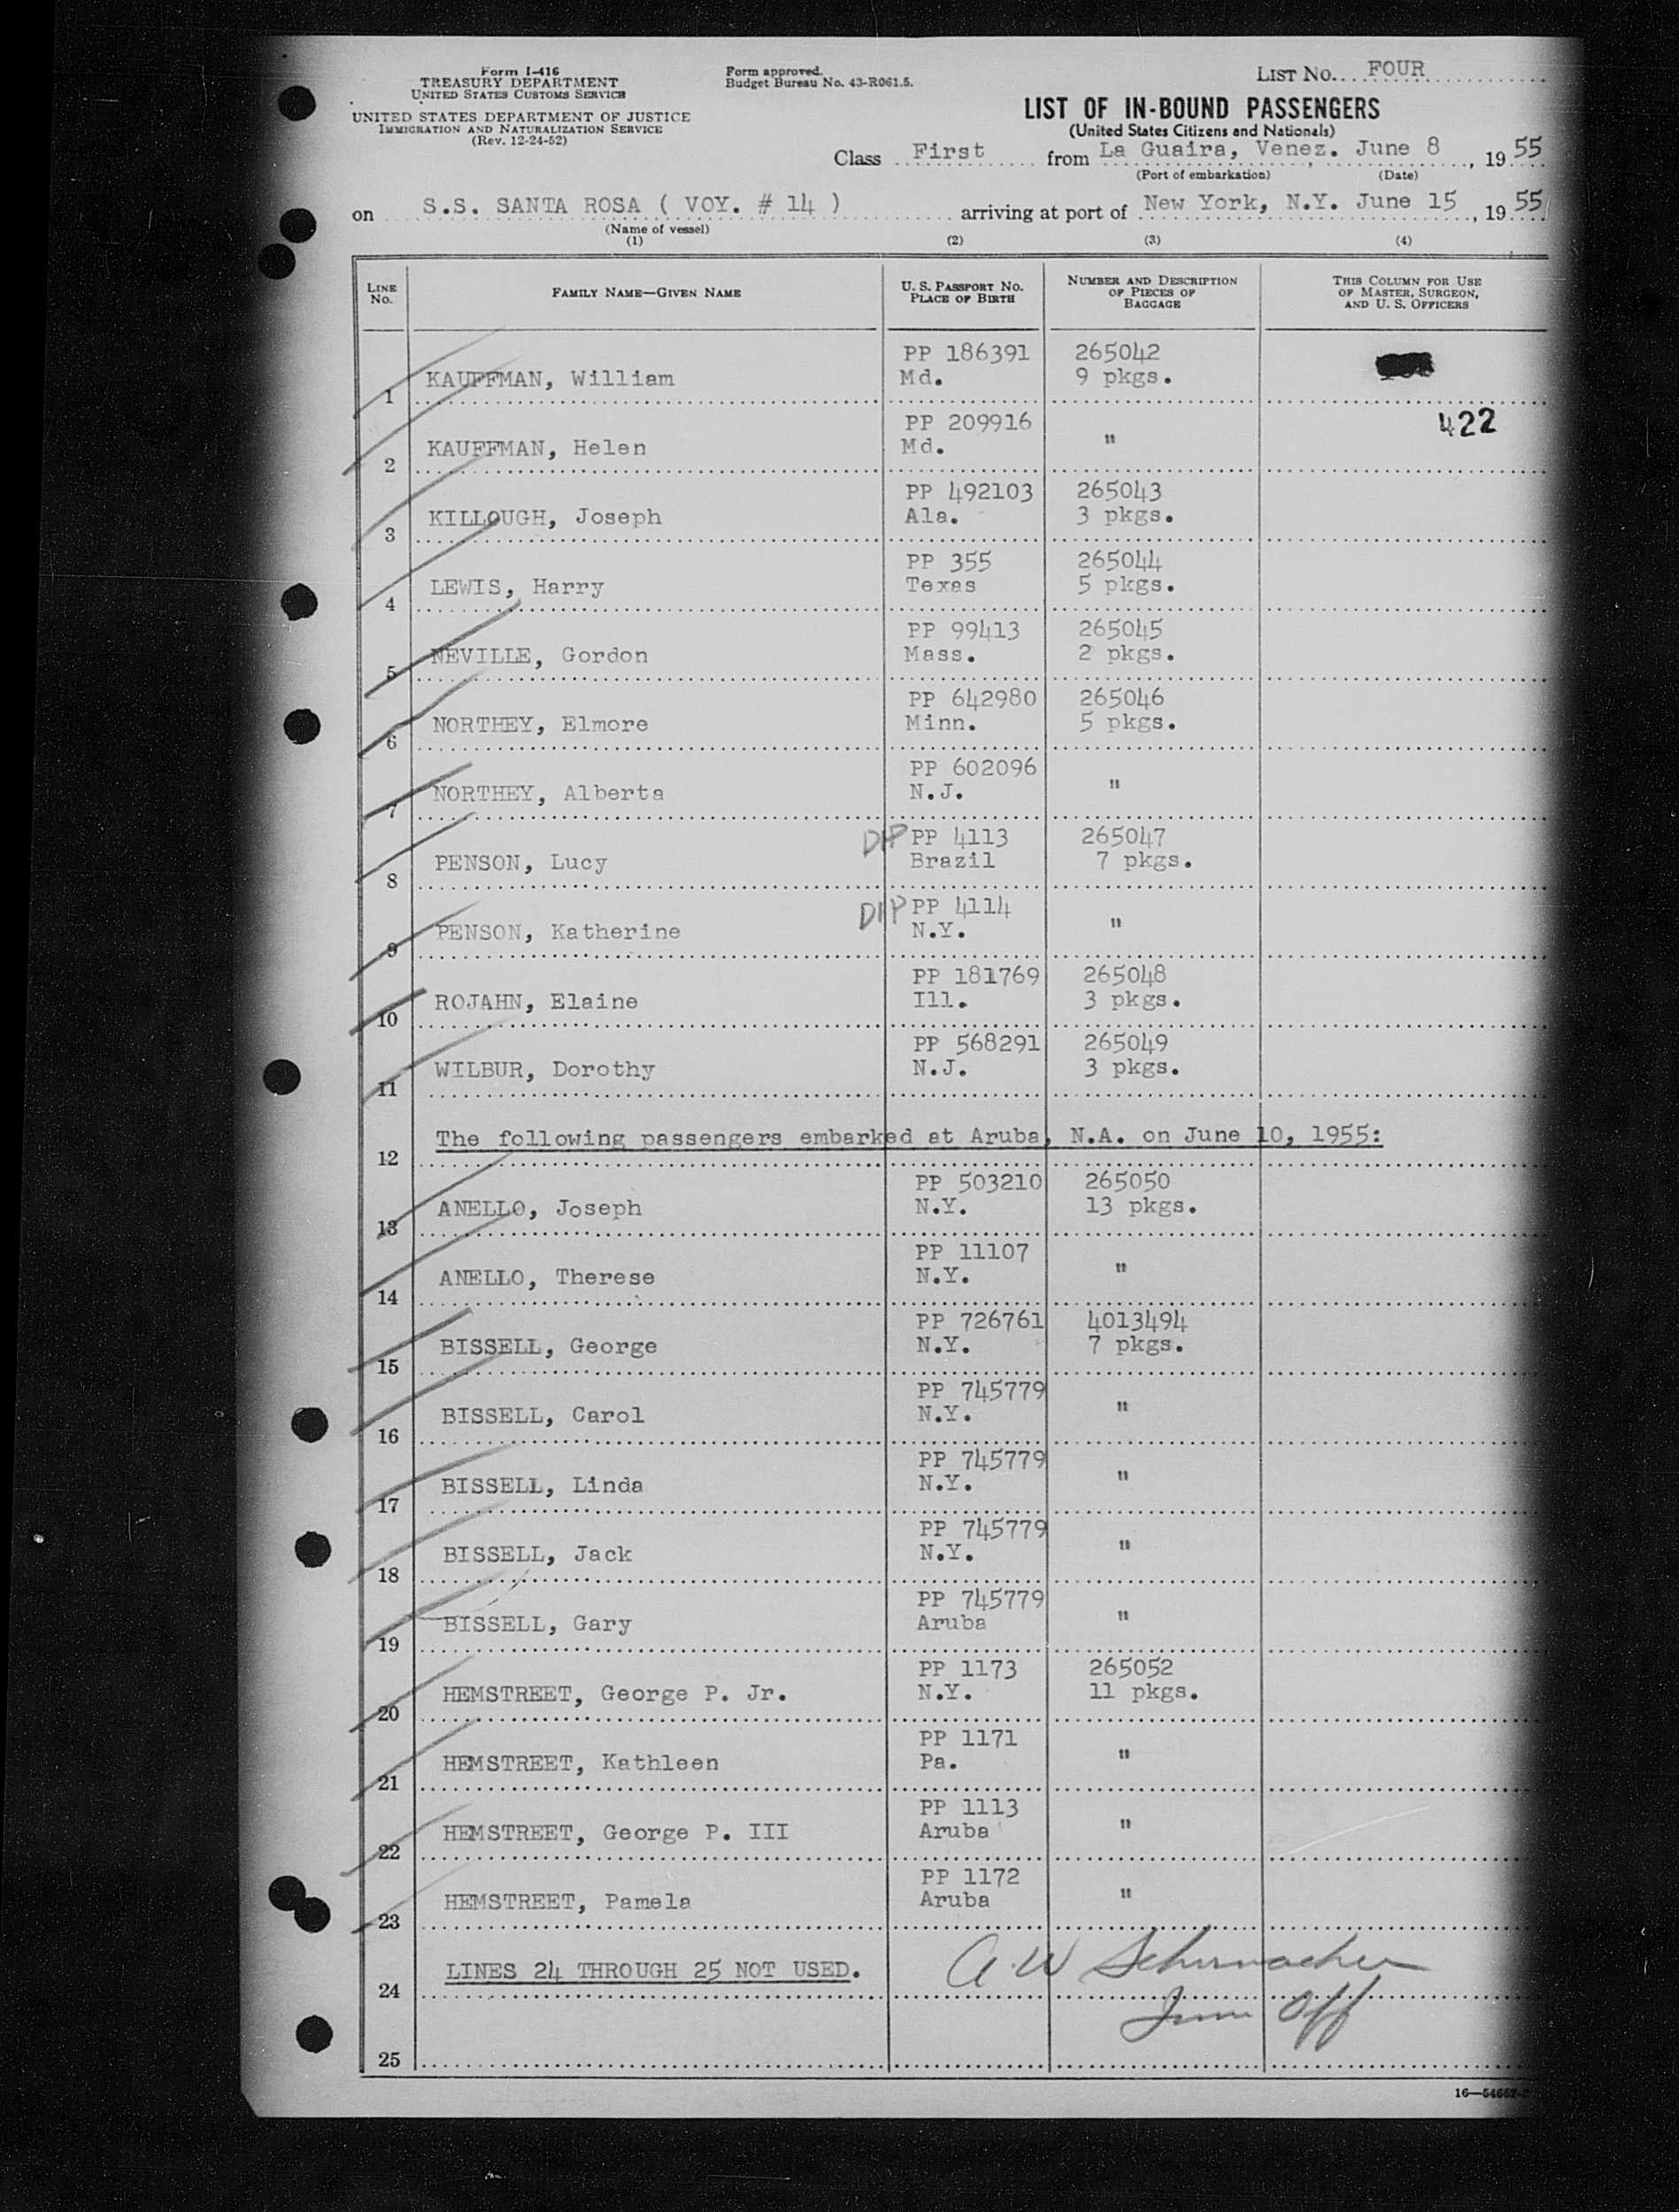 Form I-416
TREASURY DEPARTMENT
UNITED STATES CUSTOMS SERVICE
UNITED STATES DEPARTMENT OF JUSTICE
IMMIGRATION AND NATURALIZATION SERVICE
(Rev. 12-24-52)
Form approved.
Budget Bureau No. 43-R061.5.
LIST NO. FOUR
LIST OF IN-BOUND PASSENGERS
(United States Citizens and Nationals)
Class First from La Guaira, Venez. June 8, 1955
(Port of embarkation) (Date)
on S.S. SANTA ROSA ( VOY. # 14 ) arriving at port of New York, N.Y. June 15, 1955
(Name of vessel)
(1) (2) (3) (4)
LINE NO. FAMILY NAME—GIVEN NAME U. S. PASSPORT NO. PLACE OF BIRTH NUMBER AND DESCRIPTION OF PIECES OF BAGGAGE THIS COLUMN FOR USE OF MASTER, SURGEON, AND U. S. OFFICERS
PP 186391 265042
1 KAUFFMAN, William Md. 9 pkgs.
PP 209916 422
2 KAUFFMAN, Helen Md. "
PP 492103 265043
3 KILLOUGH, Joseph Ala. 3 pkgs.
PP 355 265044
4 LEWIS, Harry Texas 5 pkgs.
PP 99413 265045
5 NEVILLE, Gordon Mass. 2 pkgs.
PP 642980 265046
6 NORTHEY, Elmore Minn. 5 pkgs.
PP 602096
7 NORTHEY, Alberta N.J. "
DIP PP 4113 265047
8 PENSON, Lucy Brazil 7 pkgs.
DIP PP 4114
9 PENSON, Katherine N.Y. "
PP 181769 265048
10 ROJAHN, Elaine Ill. 3 pkgs.
PP 568291 265049
11 WILBUR, Dorothy N.J. 3 pkgs.
12 The following passengers embarked at Aruba, N.A. on June 10, 1955:
PP 503210 265050
13 ANELLO, Joseph N.Y. 13 pkgs.
PP 11107
14 ANELLO, Therese N.Y. "
PP 726761 4013494
15 BISSELL, George N.Y. 7 pkgs.
PP 745779
16 BISSELL, Carol N.Y. "
PP 745779
17 BISSELL, Linda N.Y. "
PP 745779
18 BISSELL, Jack N.Y. "
PP 745779
19 BISSELL, Gary Aruba "
PP 1173 265052
20 HEMSTREET, George P. Jr. N.Y. 11 pkgs.
PP 1171
21 HEMSTREET, Kathleen Pa. "
PP 1113
22 HEMSTREET, George P. III Aruba "
PP 1172
23 HEMSTREET, Pamela Aruba "
24 LINES 24 THROUGH 25 NOT USED. A W Schumacher
Imm Off
25